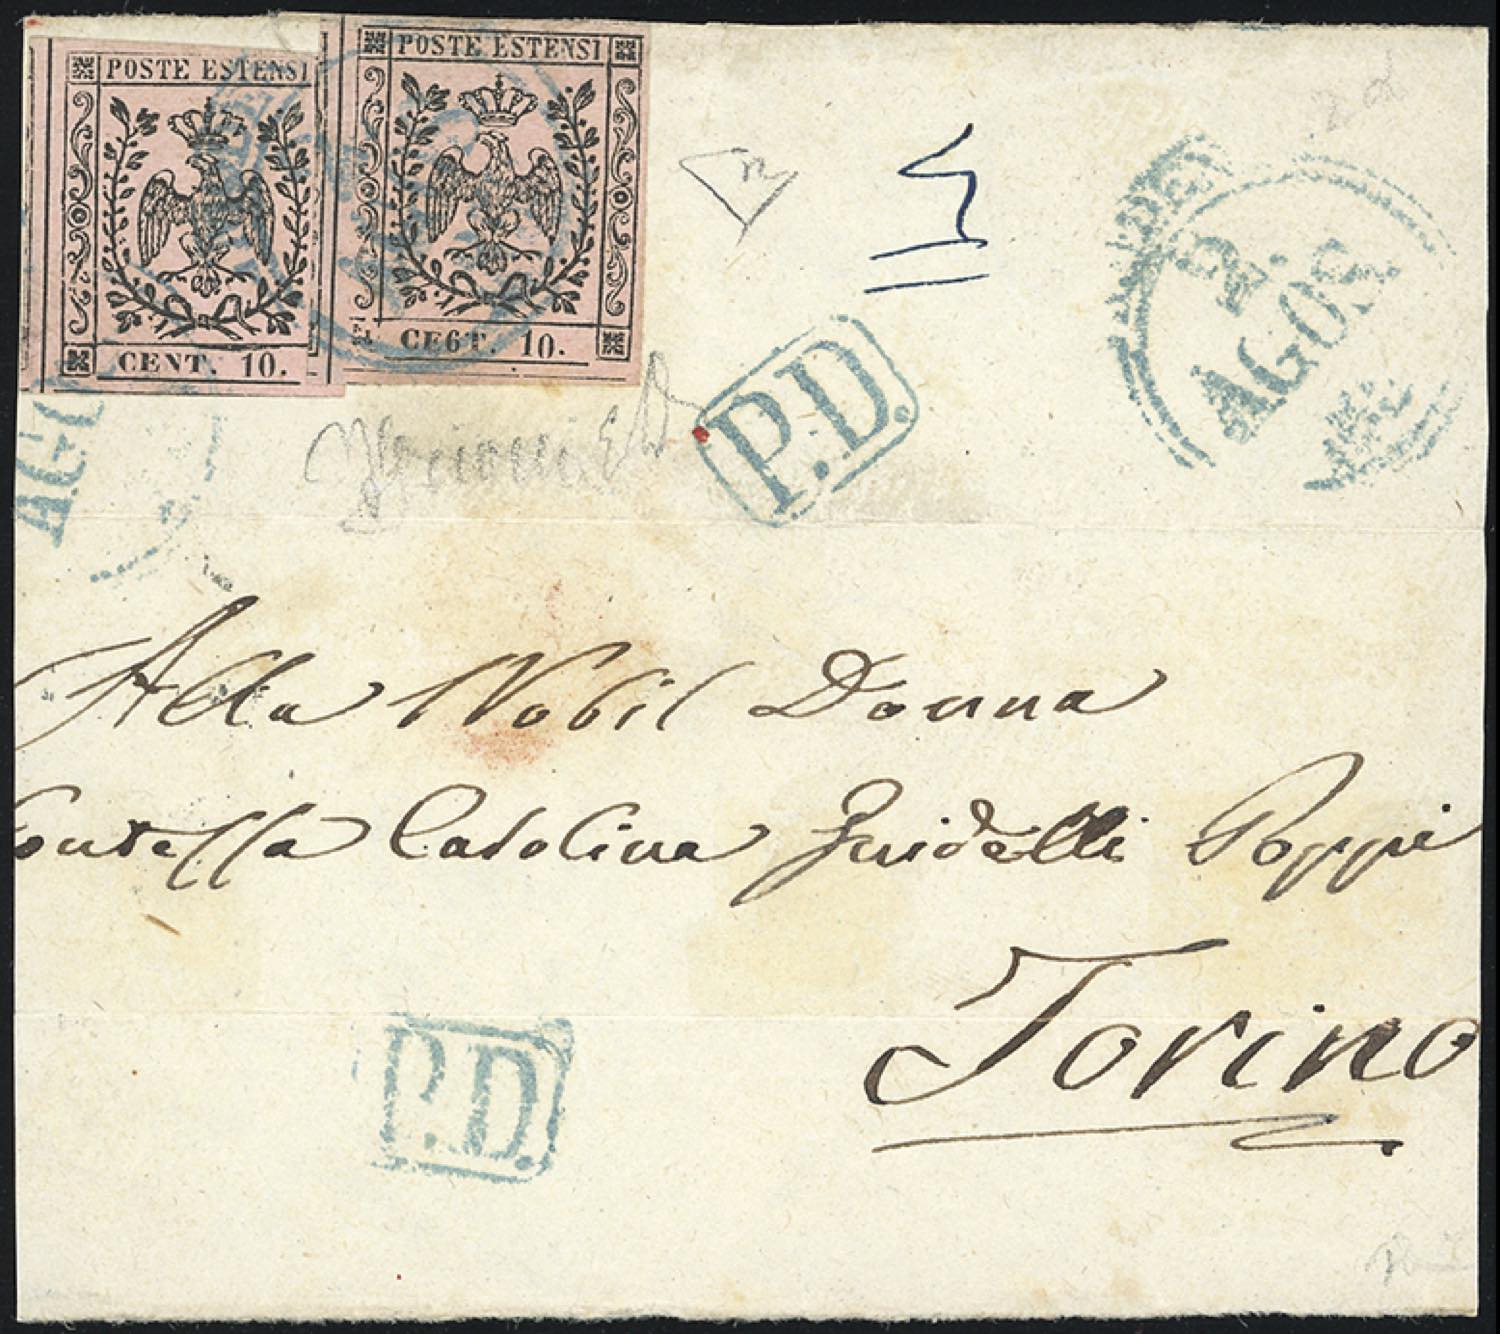 POSTE ESTENSI
CENT. 10.
POSTE ESTENSI
CE6T. 10.
P.D.
AGOS
AGO
Alla Nobil Donna
Contessa Carolina Poppi
Torino
P.D.